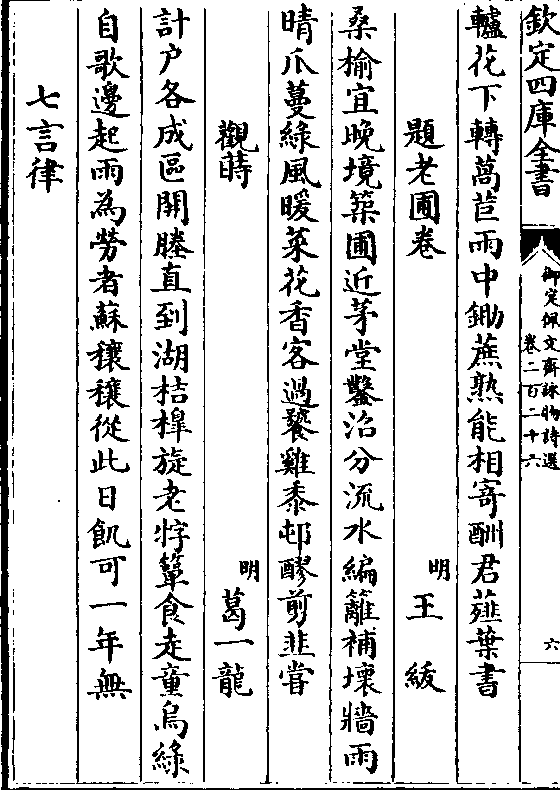 欽定四庫全書
御定佩文齋詠物詩選
卷二百二十六
六
轤花下轉萵苣雨中鋤蔗熟能相寄酬君薤葉書
題老圃卷 明 王紱
桑榆宜晚境築圃近茅堂鑿沼分流水編籬補壞牆雨
晴瓜蔓綠風暖菜花香客過饔雞黍邨醪剪韭嘗
觀蒔 明 葛一龍
計户各成區開塍直到湖桔橰旋老牸簞食走童烏綠
自歌邊起雨為勞者蘇穰穰從此日飢可一年無
七言律